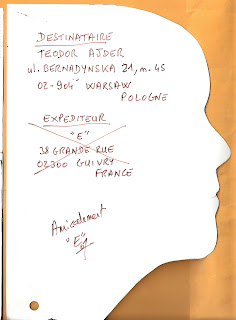 DESTINATAIRE
TEODOR AJDER
ul. BERNADYNSKA 21, m. 45
02-904 WARSAW
POLOGNE
EXPEDITEUR
"E"
38 GRANDE RUE
02300 GUIVRY
FRANCE
Amicalement
"E"